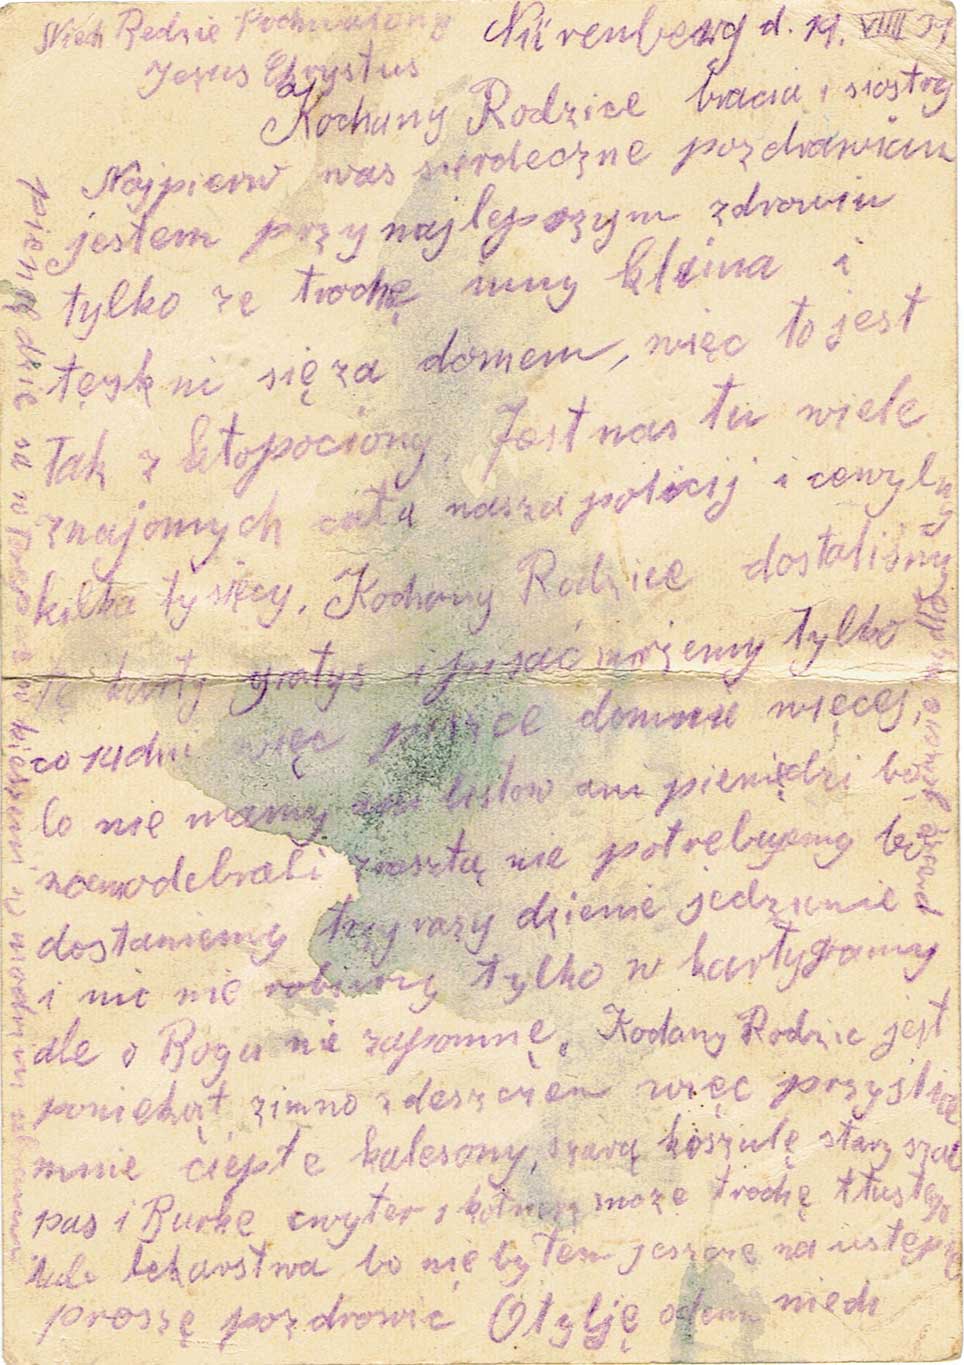 Niech Będzie Pochwalony
Jezus Chrystus
Nürenberg d. 19. VIIII 39
Kochany Rodzice bracia i siostry
Najpierw was serdeczne pozdrawiam
jestem przy najlepszym zdrowiu
tylko ze trochę inny klima i
tęskni się za domem, więc to jest
Tak z kłopociony. Jest nas tu wiele
znajomych cała nasza policij i cewylny
kilka tysięcy. Kochany Rodzice dostaliśmy
tę karty gratys i pisać możemy tylko
co 14 dni więc piszce domnie więcej,
bo nie mamy ani listow ani pieniędzi bo
odebrali zresztą nie potrebujemy bo
dostaniemy trzy razy dzienie jedzienie
i nic nie robimy tylko w karty gramy
ale o Bogu nie zapomnę. Kodany Rodzic jest
poniekąt zimno z deszczem więc przyslice
mnie ciepłe kalesony, szarą koszulę stary szal
pas i Burkę cwyter i może trochę tłustego
lub lekarstwa bo nie byłem jeszcze na ustępie
proszę pozdrowić Otylję odem niech
pieniądzie są w w kieszeni w modrym ubraniu